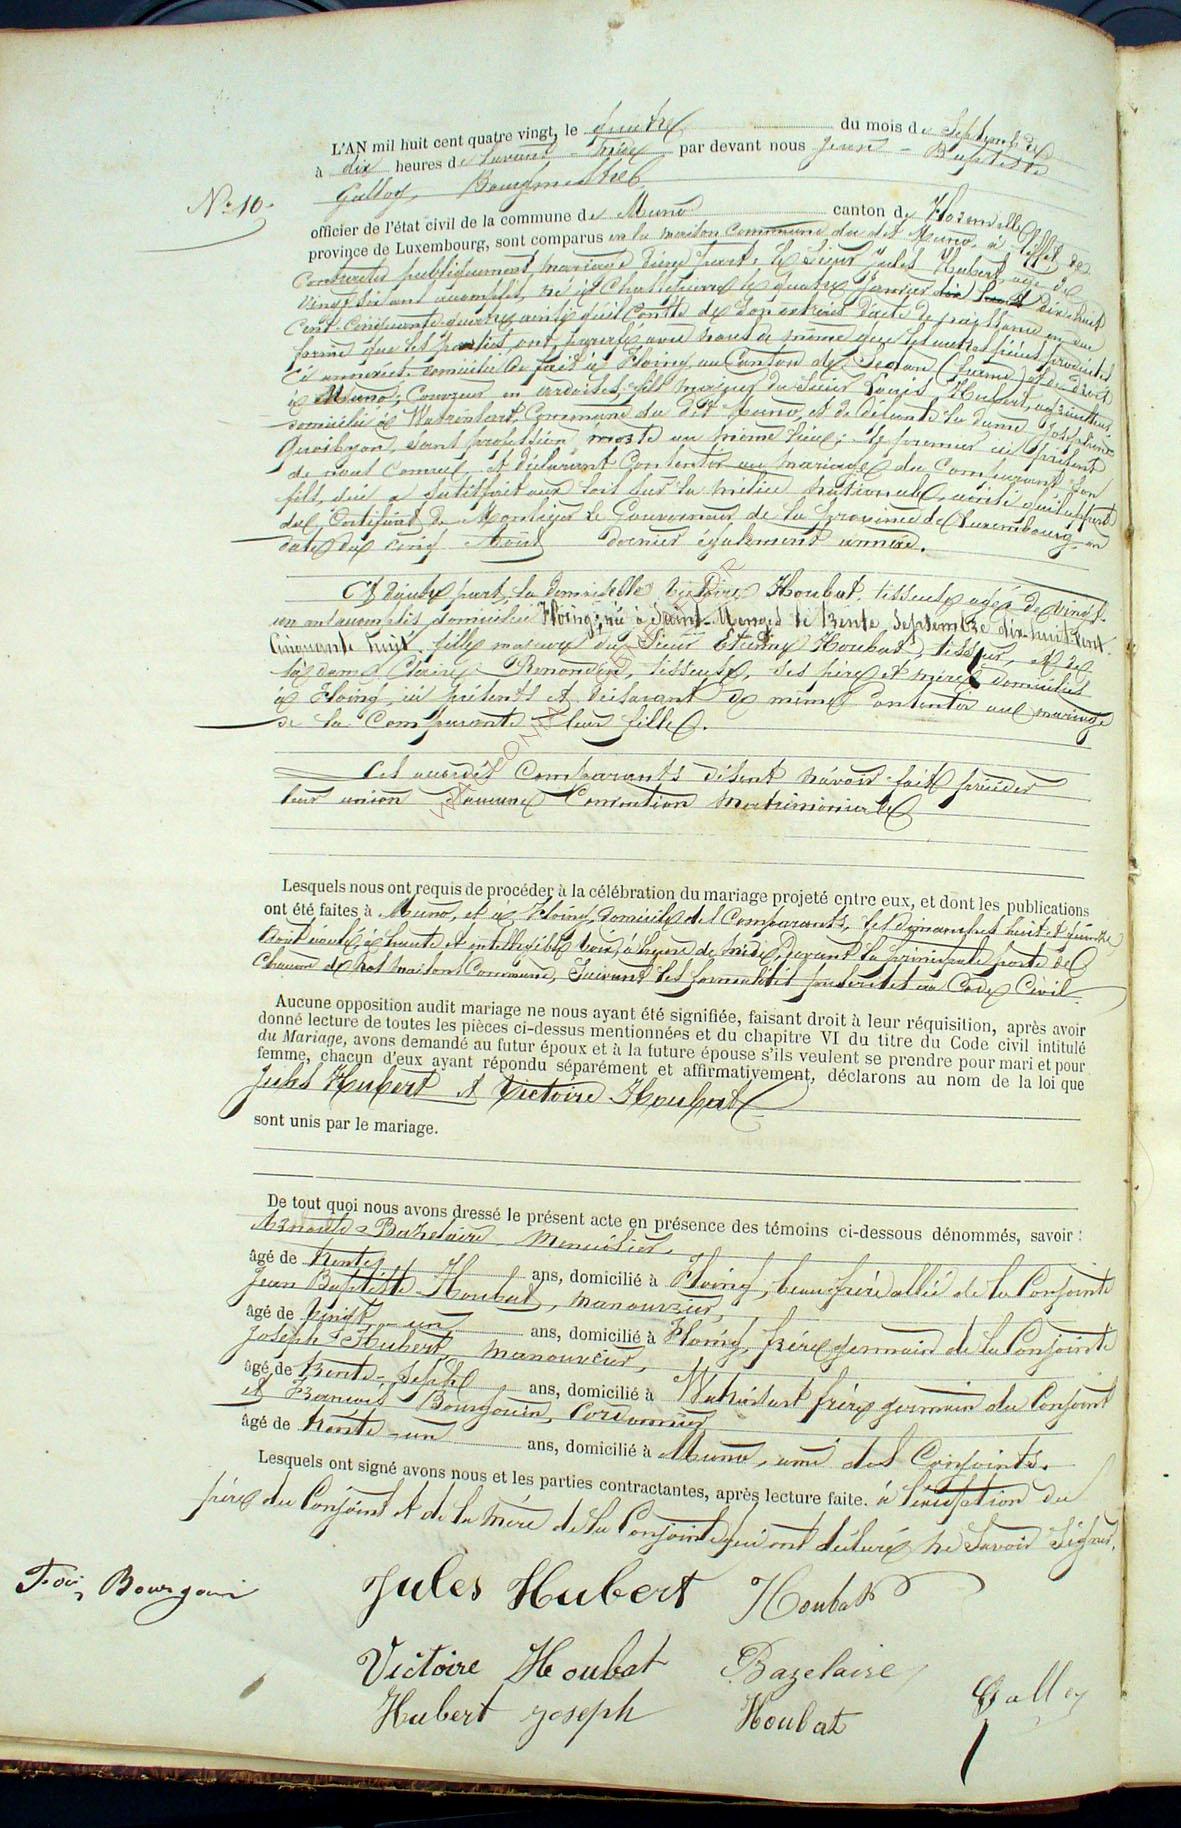 L'AN mil huit cent quatre vingt, le du mois de Septembre
à dix heures de avant-midi par devant nous Jean-Baptiste
Galloy, Bourgmestre
N° 10.
officier de l'état civil de la commune de Muno canton de Florenville
province de Luxembourg, sont comparus en la maison commune du dit Muno, à l'effet de
contracter publiquement mariage d'une part, le sieur Jules Hubert, âgé de
vingt six ans accomplis, né à le quatre Janvier dix huit
cent cinquante-quatre, ainsi qu'il conste de son extrait d'acte de naissance en due
forme que les parties ont, avec nous de même que les autres pièces produites
ci annexées, domicilié de fait à Floing, au Canton de Sedan (france) et de droit
à Muno, Couvreur en ardoises, fils majeur du sieur Louis Hubert,
domicilié à Watrinsart, Commune du dit Muno, et de défunte la dame Joséphine
sans profession morte au même lieu; le premier ici présent
de nous connu, et déclarant consentir au mariage du Comparant son
fils, qui a satisfait aux lois sur la milice nationale, ainsi qu'il appert
du Certificat de Monsieur le Gouverneur de la province de Luxembourg, en
date du cinq Août dernier également annexé.
Et d'autre part, la demoiselle Victoire Houbat, tisseuse, âgée de vingt-
un ans accomplis, domiciliée Floing, née à Saint-Menges le trente Septembre dix-huit-Cent-
Cinquante huit, fille majeure du Sieur Etienne Houbat, tisseur, et de
la dame Claire tisseuse, ses père et mère domiciliés
à Floing, ici présents et déclarant de même consentir au mariage
de la Comparante leur fille.
Les susdits Comparants disent n'avoir fait précéder
leur union d'aucune Convention Matrimoniale
Lesquels nous ont requis de procéder à la célébration du mariage projeté entre eux, et dont les publications
ont été faites à Muno, et à Floing, domicile des Comparants, les dimanches huit et quinze
Août à haute et intelligible voix, à heure de midi, devant la principale porte de
Chacune de nos maisons Communes, suivant les formalités prescrites au Code Civil.
Aucune opposition audit mariage ne nous ayant été signifiée, faisant droit à leur réquisition, après avoir
donné lecture de toutes les pièces ci-dessus mentionnées et du chapitre VI du titre du Code civil intitulé
du Mariage, avons demandé au futur époux et à la future épouse s'ils veulent se prendre pour mari et pour
femme, chacun d'eux ayant répondu séparément et affirmativement, déclarons au nom de la loi que
Jules Hubert et Victoire Houbat
sont unis par le mariage.
De tout quoi nous avons dressé le présent acte en présence des témoins ci-dessous dénommés, savoir :
Bazelaire, Menuisier,
âgé de trente ans, domicilié à Floing, beau frère allié de la Conjointe
Jean Baptiste Houbat, manouvrier,
âgé de vingt-un ans, domicilié à Floing, frère germain de la Conjointe
Joseph Hubert, manouvrier,
âgé de trente-sept ans, domicilié à Watrinsart frère germain du Conjoint
et François Bourgouin, Cordonnier
âgé de trente-un ans, domicilié à Muno, ami des Conjoints.
Lesquels ont signé avons nous et les parties contractantes, après lecture faite. à l'exception du
père du Conjoint et de la Mère de la Conjointe qui ont déclaré ne savoir signer.
Bourgoin Jules Hubert Houbat
Victoire Houbat Bazelaire
Hubert joseph Houbat Galloy